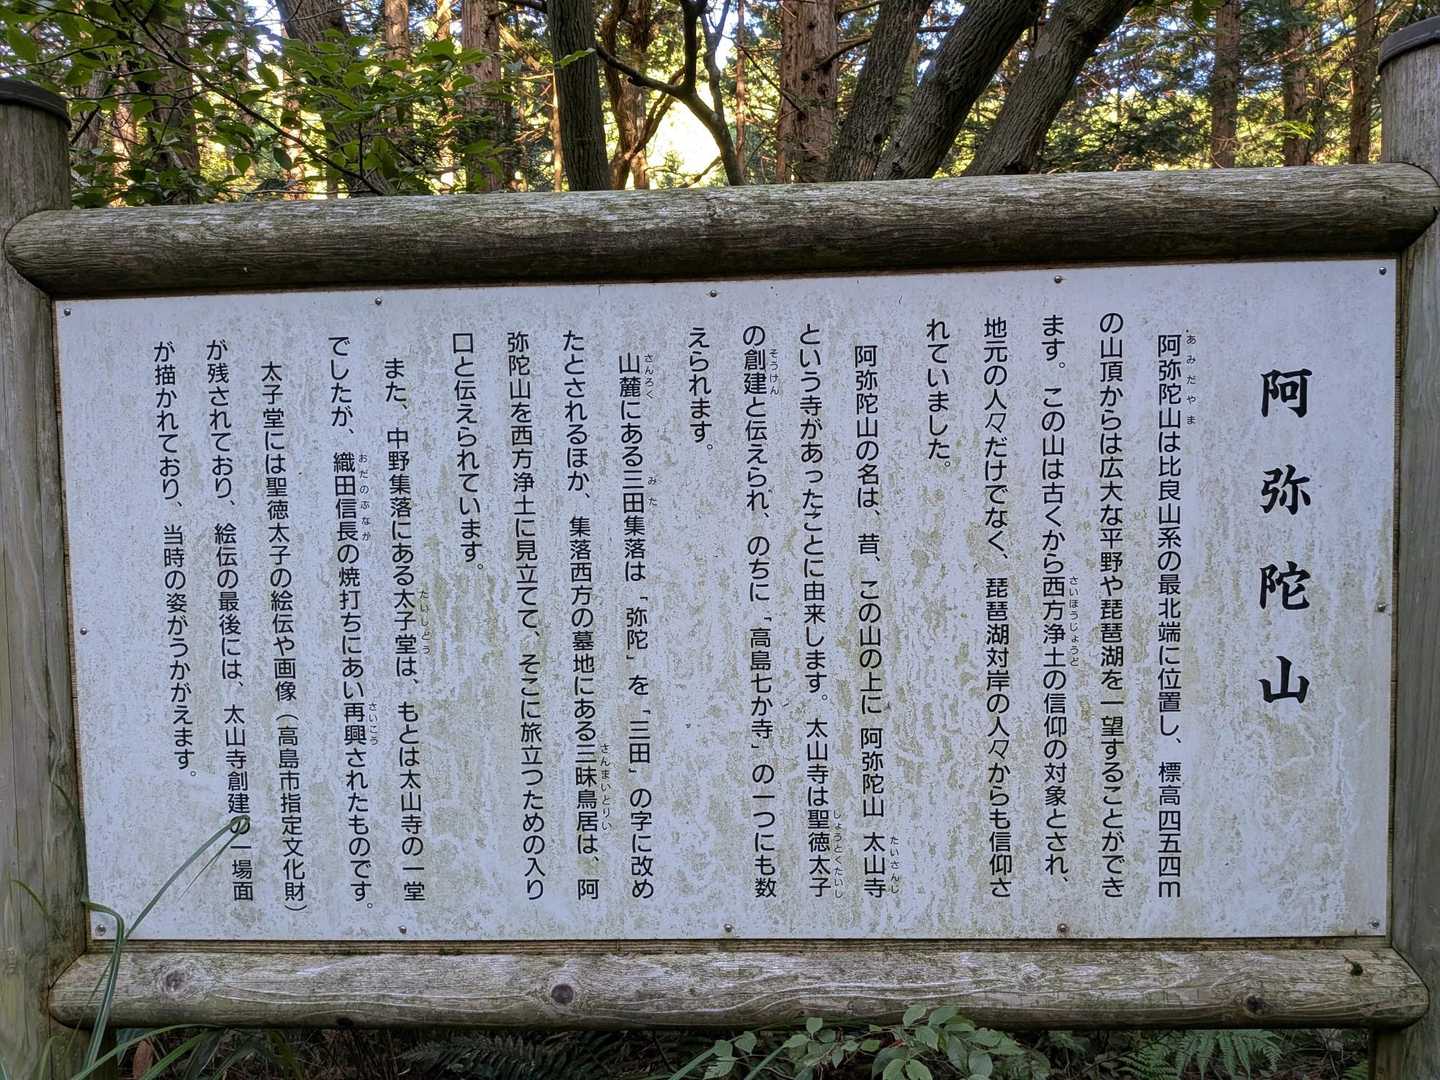 阿弥陀山
阿弥陀山は比良山系の最北端に位置し、標高四五四m
あみだやま
の山頂からは広大な平野や琵琶湖を一望することができ
ます。この山は古くから西方浄土の信仰の対象とされ、
さいほうじょうど
地元の人々だけでなく、琵琶湖対岸の人々からも信仰さ
れていました。
阿弥陀山の名は、昔、この山の上に 阿弥陀山 太山寺
たいさんじ
という寺があったことに由来します。太山寺は聖徳太子
しょうとくたいし
の創建と伝えられ、のちに「高島七か寺」の一つにも数
そうけん
えられます。
山麓にある三田集落は「弥陀」を「三田」の字に改め
さんろく みた
たとされるほか、集落西方の墓地にある三昧鳥居は、阿
さんまいとりい
弥陀山を西方浄土に見立てて、そこに旅立つための入り
口と伝えられています。
また、中野集落にある太子堂は、もとは太山寺の一堂
たいしどう
でしたが、織田信長の焼打ちにあい再興されたものです。
おだのぶなが さいこう
太子堂には聖徳太子の絵伝や画像（高島市指定文化財）
が残されており、絵伝の最後には、太山寺創建の一場面
が描かれており、当時の姿がうかがえます。